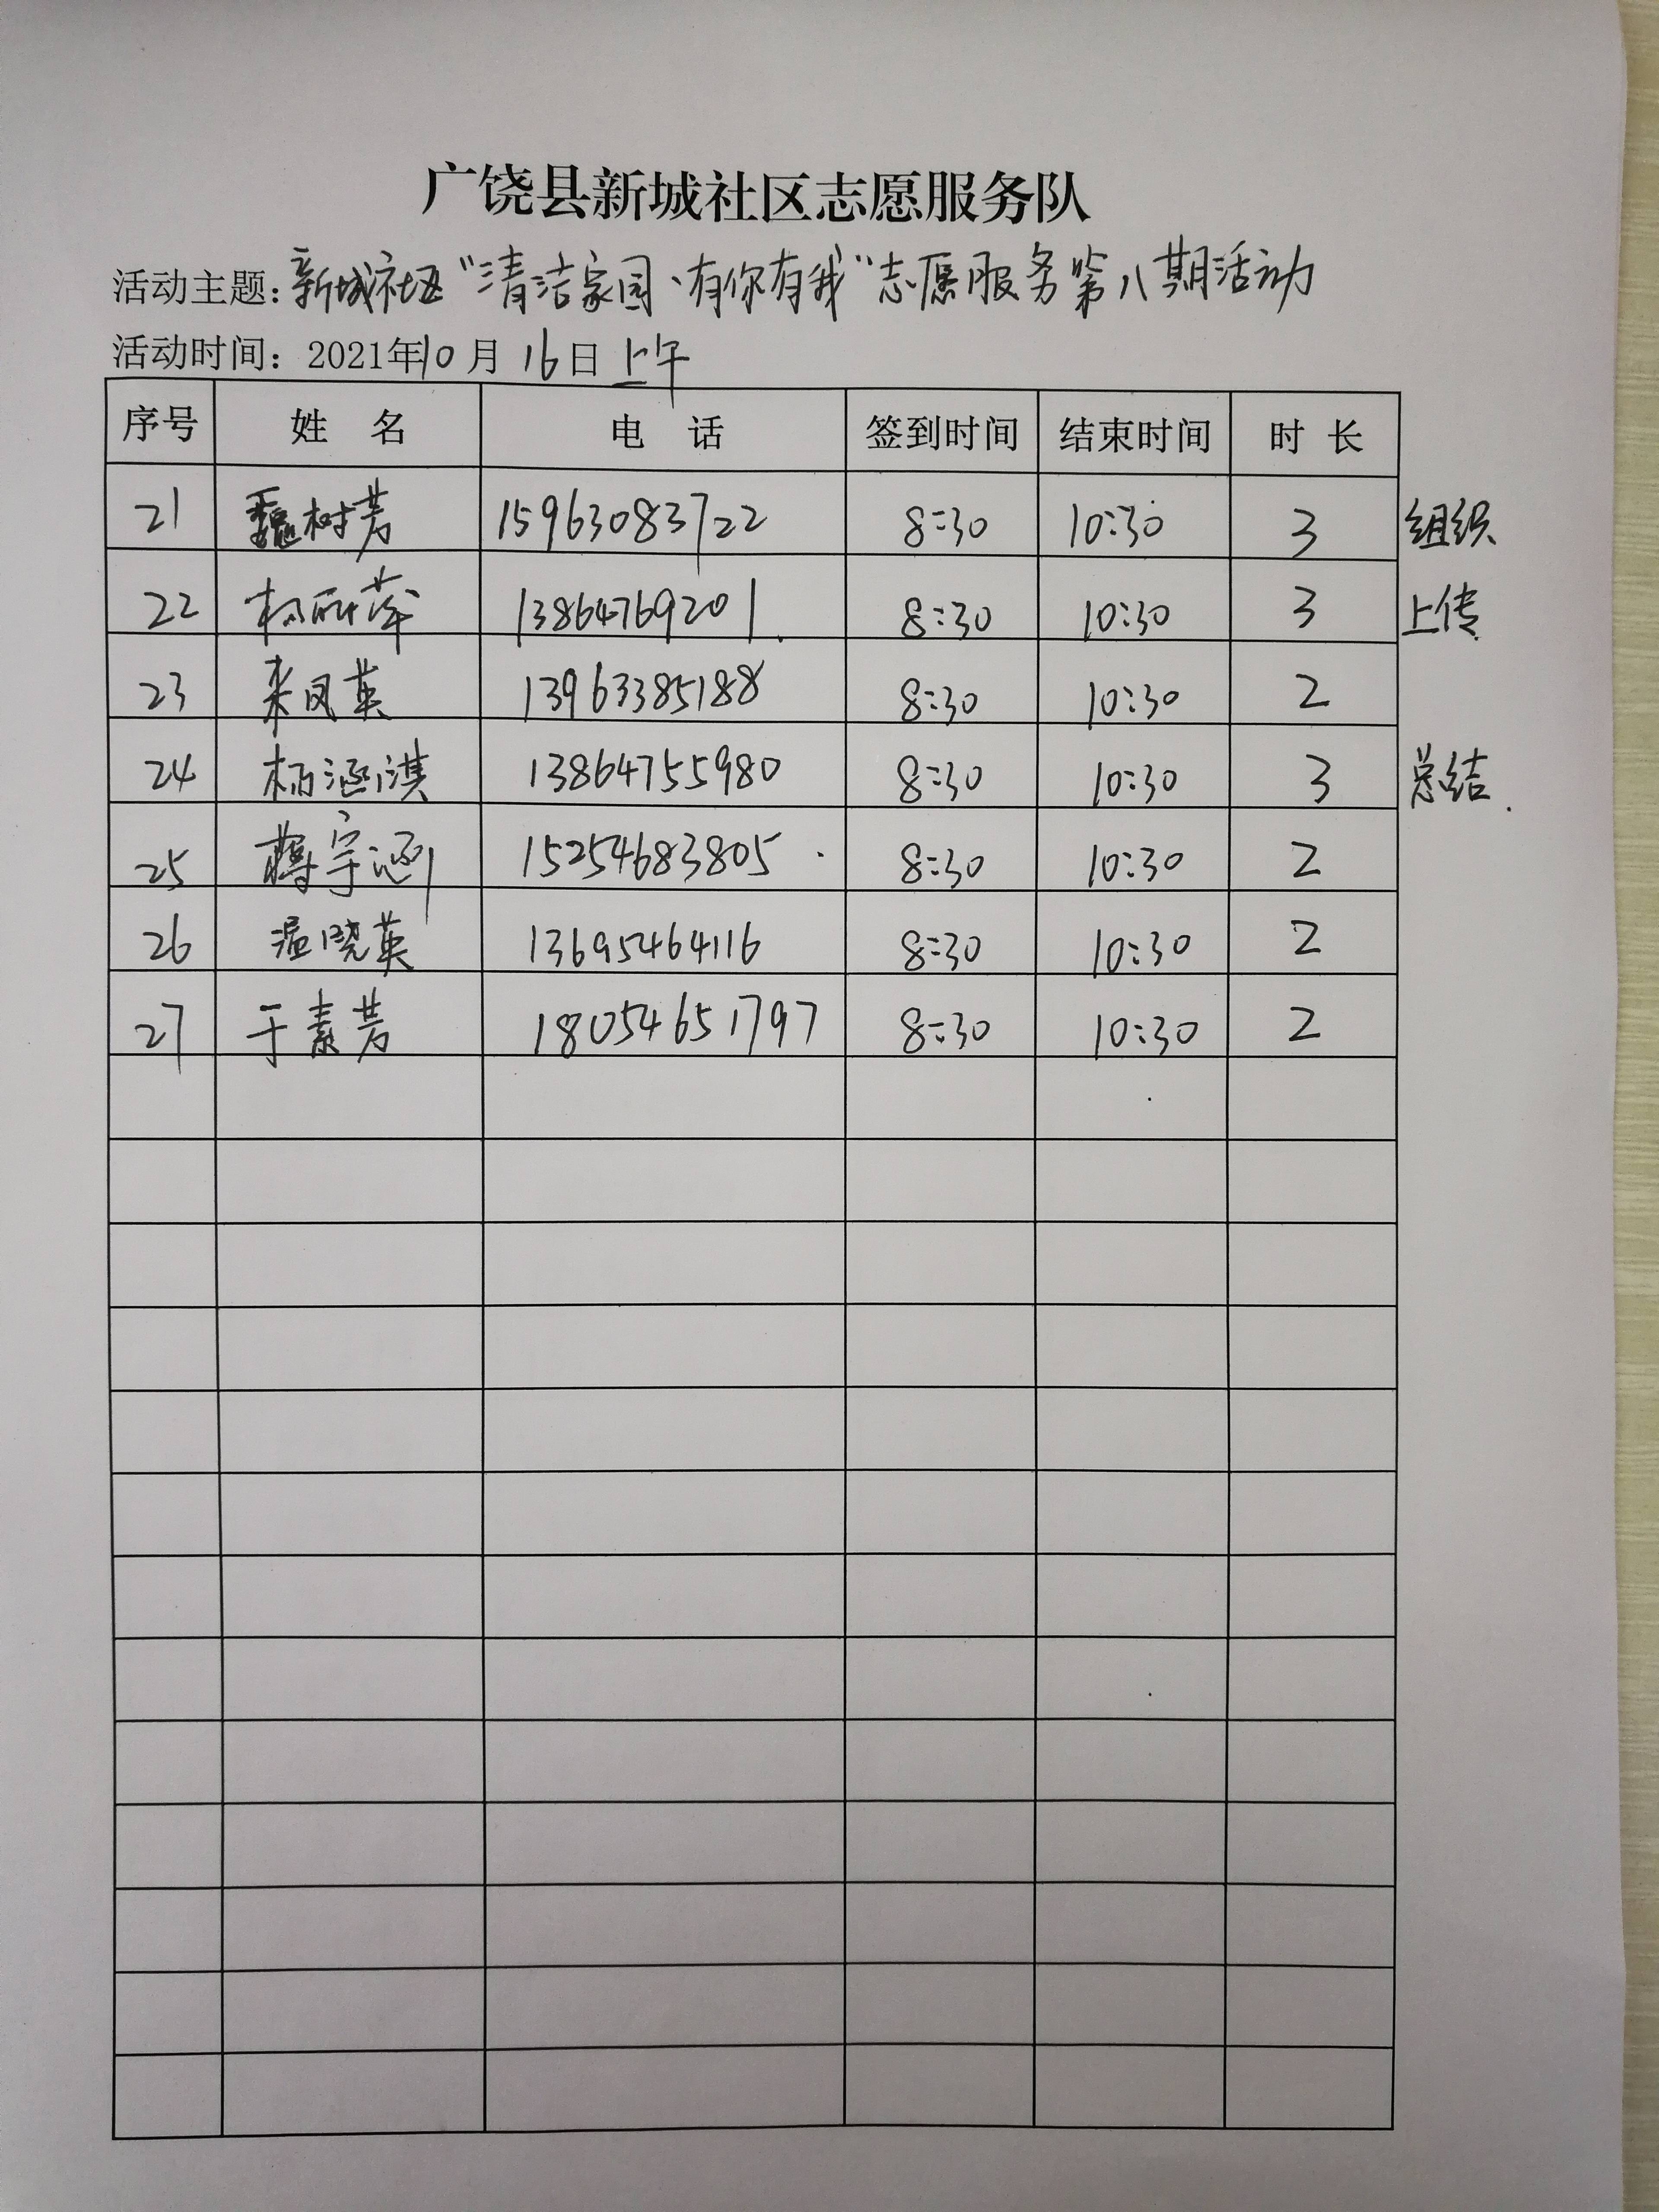 广饶县新城社区志愿服务队
活动主题:新城社区"清洁家园、有你有我"志愿服务第八期活动
活动时间:2021年10月16日上午
序号 姓 名 电 话 签到时间 结束时间 时 长
21 魏树芳 15963083722 8:30 10:30 3 组织
22 13864769201 8:30 10:30 3 上传
23 来风英 13963385188 8:30 10:30 2
24 杨涵淇 13864755980 8:30 10:30 3 总结.
25 蒋宇涵 15254683805 8:30 10:30 2
26 温晓英 13695464116 8:30 10:30 2
27 于素芳 18054651797 8:30 10:30 2